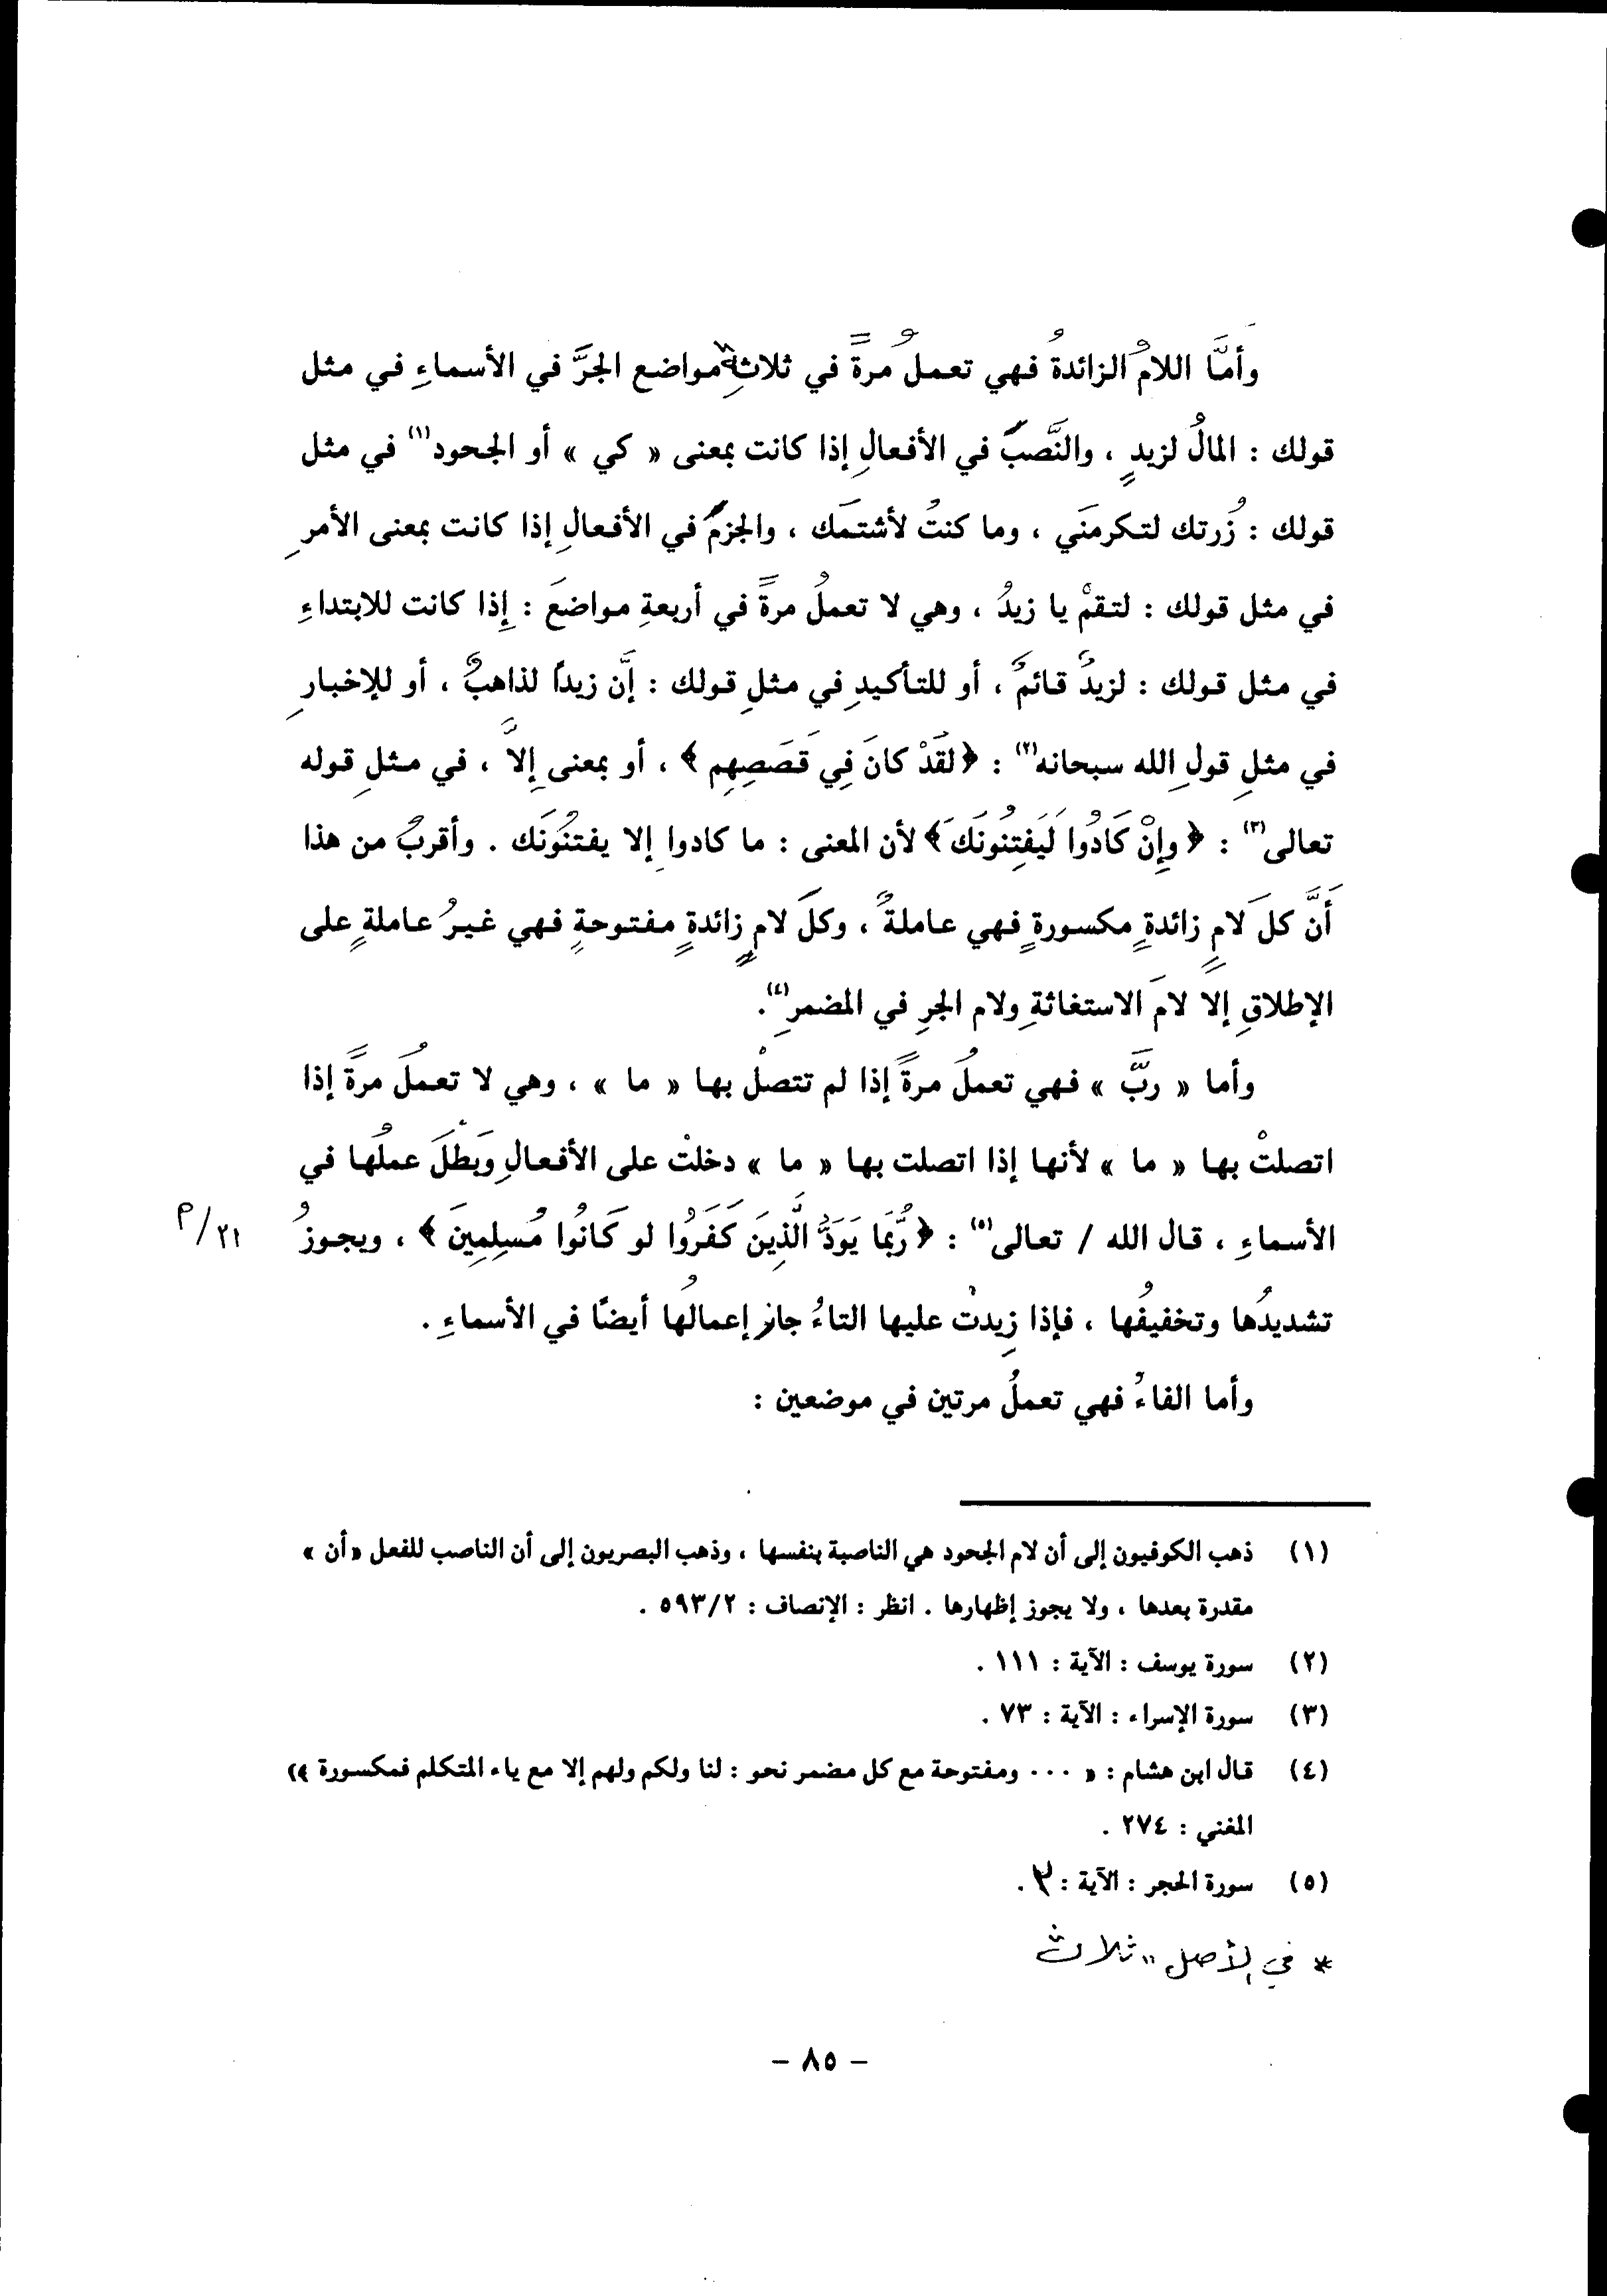 وأمَّا اللامُ الزائدةُ فهي تعملُ مرةً في ثلاثةِ مواضع الجرَّ في الأسماءِ في مثل
قولك : المالُ لزيدٍ ، والنَّصبَ في الأفعالِ إذا كانت بمعنى « كي » أو الجحود(١) في مثل
قولك : زُرتك لتكرمَني ، وما كنتُ لأشتمَك ، والجزمَ في الأفعالِ إذا كانت بمعنى الأمرِ
في مثل قولك : لتقمْ يا زيدُ ، وهي لا تعملُ مرةً في أربعةِ مواضعَ : إِذا كانت للابتداءِ
في مثل قولك : لزيدٌ قائمٌ ، أو للتأكيدِ في مثلِ قولك : إنَّ زيداً لذاهبٌ ، أو للإخبارِ
في مثلِ قولِ الله سبحانه(٢) : ﴿ لقَدْ كانَ فِي قَصَصِهِم ﴾ ، أو بمعنى إِلاَّ ، في مثلِ قوله
تعالى(٣) : ﴿ وإِنْ كَادُوا لَيَفتِنُونَكَ ﴾ لأن المعنى : ما كادوا إلا يفتنُونَك . وأقربُ من هذا
أنَّ كلَ لامٍ زائدةٍ مكسورةٍ فهي عاملةٌ ، وكلَ لامٍ زائدةٍ مفتوحةٍ فهي غيرُ عاملةٍ على
الإطلاقِ إلا لامَ الاستغاثةِ ولام الجرِ في المضمرِ(٤).
وأما « ربَّ » فهي تعملُ مرةً إذا لم تتصلْ بها « ما » ، وهي لا تعملُ مرةً إذا
اتصلتْ بها « ما » لأنها إذا اتصلت بها « ما » دخلتْ على الأفعالِ وبَطْلَ عملُها في
الأسماءِ ، قال الله / تعالى(٥) : ﴿ رُّبَمَا يَوَدُّ الَّذِينَ كَفَرُوا لو كَانُوا مُسلِمِينَ ﴾ ، ويجوزُ
٢١/م
تشديدُها وتخفيفُها ، فإذا زِيدتْ عليها التاءُ جاز إعمالُها أيضًا في الأسماءِ .
وأما الفاءُ فهي تعملُ مرتين في موضعين :
(١) ذهب الكوفيون إلى أن لام الجحود هي الناصبة بنفسها ، وذهب البصريون إلى أن الناصب للفعل «أن »
مقدرة بعدها ، ولا يجوز إظهارها . انظر : الإنصاف : ٥٩٣/٢ .
(٢) سورة يوسف : الآية : ١١١ .
(٣) سورة الإسراء : الآية : ٧٣ .
(٤) قال ابن هشام : « ... ومفتوحة مع كل مضمر نحو : لنا ولكم ولهم إلا مع ياء المتكلم فمكسورة »
المغني : ٢٧٤ .
(٥) سورة الحجر : الآية : ٢ .
* في الأصل " ثلاث
- ٨٥ -